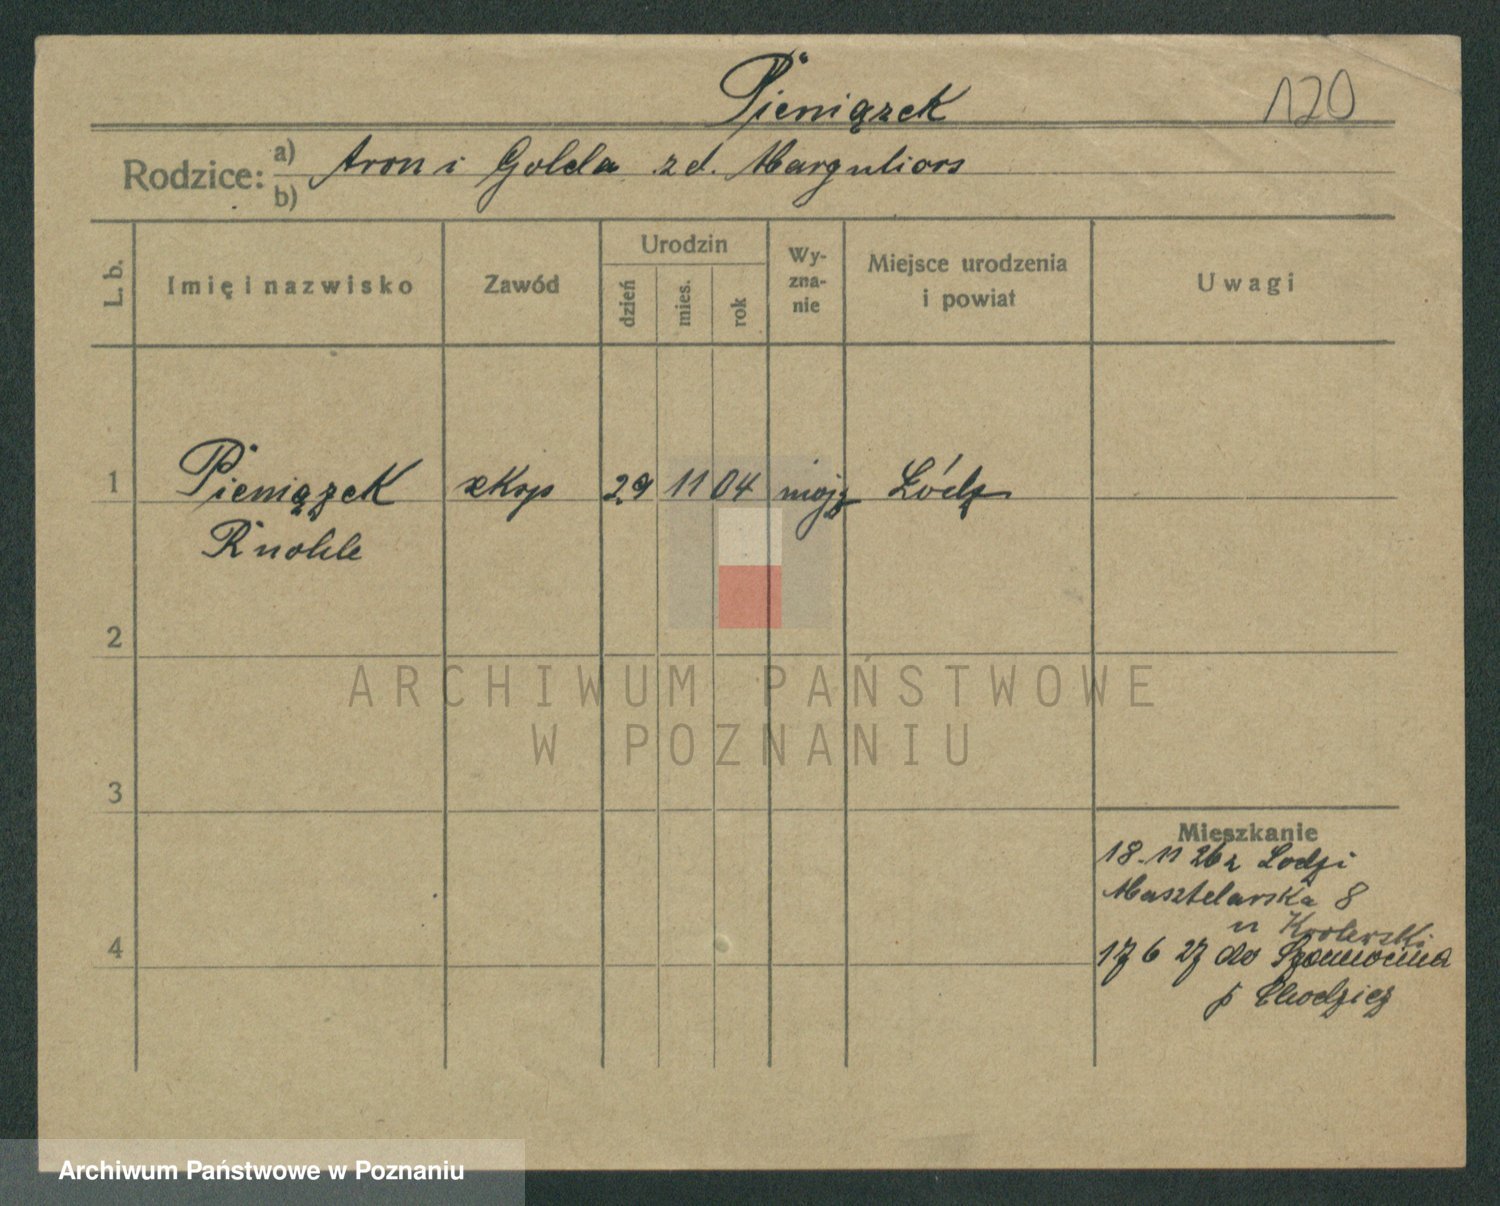 Pieniązek
120
Rodzice: a) Aron i Golda zd. Marguliors
b)
L. b.
Imię i nazwisko
Zawód
Urodzin
dzień
mies.
rok
Wy-
zna-
nie
Miejsce urodzenia
i powiat
Uwagi
1 Pieniązek eksp 29 11 04 mojż Łódź
2
ARCHIWUM PAŃSTWOWE
W POZNANIU
3
Mieszkanie
18-11 26 z Lodzi
Masztelarska 8
4
17 6 27 do Szamocina
p Chodzież
Archiwum Państwowe w Poznaniu